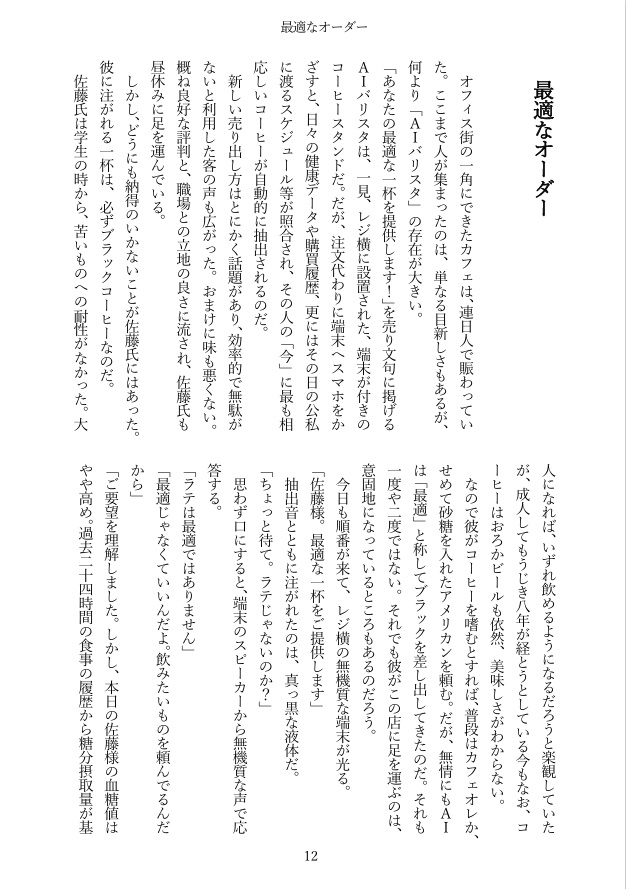 最適なオーダー
最適なオーダー
オフィス街の一角にできたカフェは、連日人で賑わってい
た。ここまで人が集まったのは、単なる目新しさもあるが、
何より「ＡＩバリスタ」の存在が大きい。
「あなたの最適な一杯を提供します！」を売り文句に掲げる
ＡＩバリスタは、一見、レジ横に設置された、端末が付きの
コーヒースタンドだ。だが、注文代わりに端末へスマホをか
ざすと、日々の健康データや購買履歴、更にはその日の公私
に渡るスケジュール等が照合され、その人の「今」に最も相
応しいコーヒーが自動的に抽出されるのだ。
新しい売り出し方はとにかく話題があり、効率的で無駄が
ないと利用した客の声も広がった。おまけに味も悪くない。
概ね良好な評判と、職場との立地の良さに流され、佐藤氏も
昼休みに足を運んでいる。
しかし、どうにも納得のいかないことが佐藤氏にはあった。
彼に注がれる一杯は、必ずブラックコーヒーなのだ。
佐藤氏は学生の時から、苦いものへの耐性がなかった。大
人になれば、いずれ飲めるようになるだろうと楽観していた
が、成人してもうじき八年が経とうとしている今もなお、コ
ーヒーはおろかビールも依然、美味しさがわからない。
なので彼がコーヒーを嗜むとすれば、普段はカフェオレか、
せめて砂糖を入れたアメリカンを頼む。だが、無情にもＡＩ
は「最適」と称してブラックを差し出してきたのだ。それも
一度や二度ではない。それでも彼がこの店に足を運ぶのは、
意固地になっているところもあるのだろう。
今日も順番が来て、レジ横の無機質な端末が光る。
「佐藤様。最適な一杯をご提供します」
抽出音とともに注がれたのは、真っ黒な液体だ。
「ちょっと待て。ラテじゃないのか？」
思わず口にすると、端末のスピーカーから無機質な声で応
答する。
「ラテは最適ではありません」
「最適じゃなくていいんだよ。飲みたいものを頼んでるんだ
から」
「ご要望を理解しました。しかし、本日の佐藤様の血糖値は
やや高め。過去二十四時間の食事の履歴から糖分摂取量が基
12